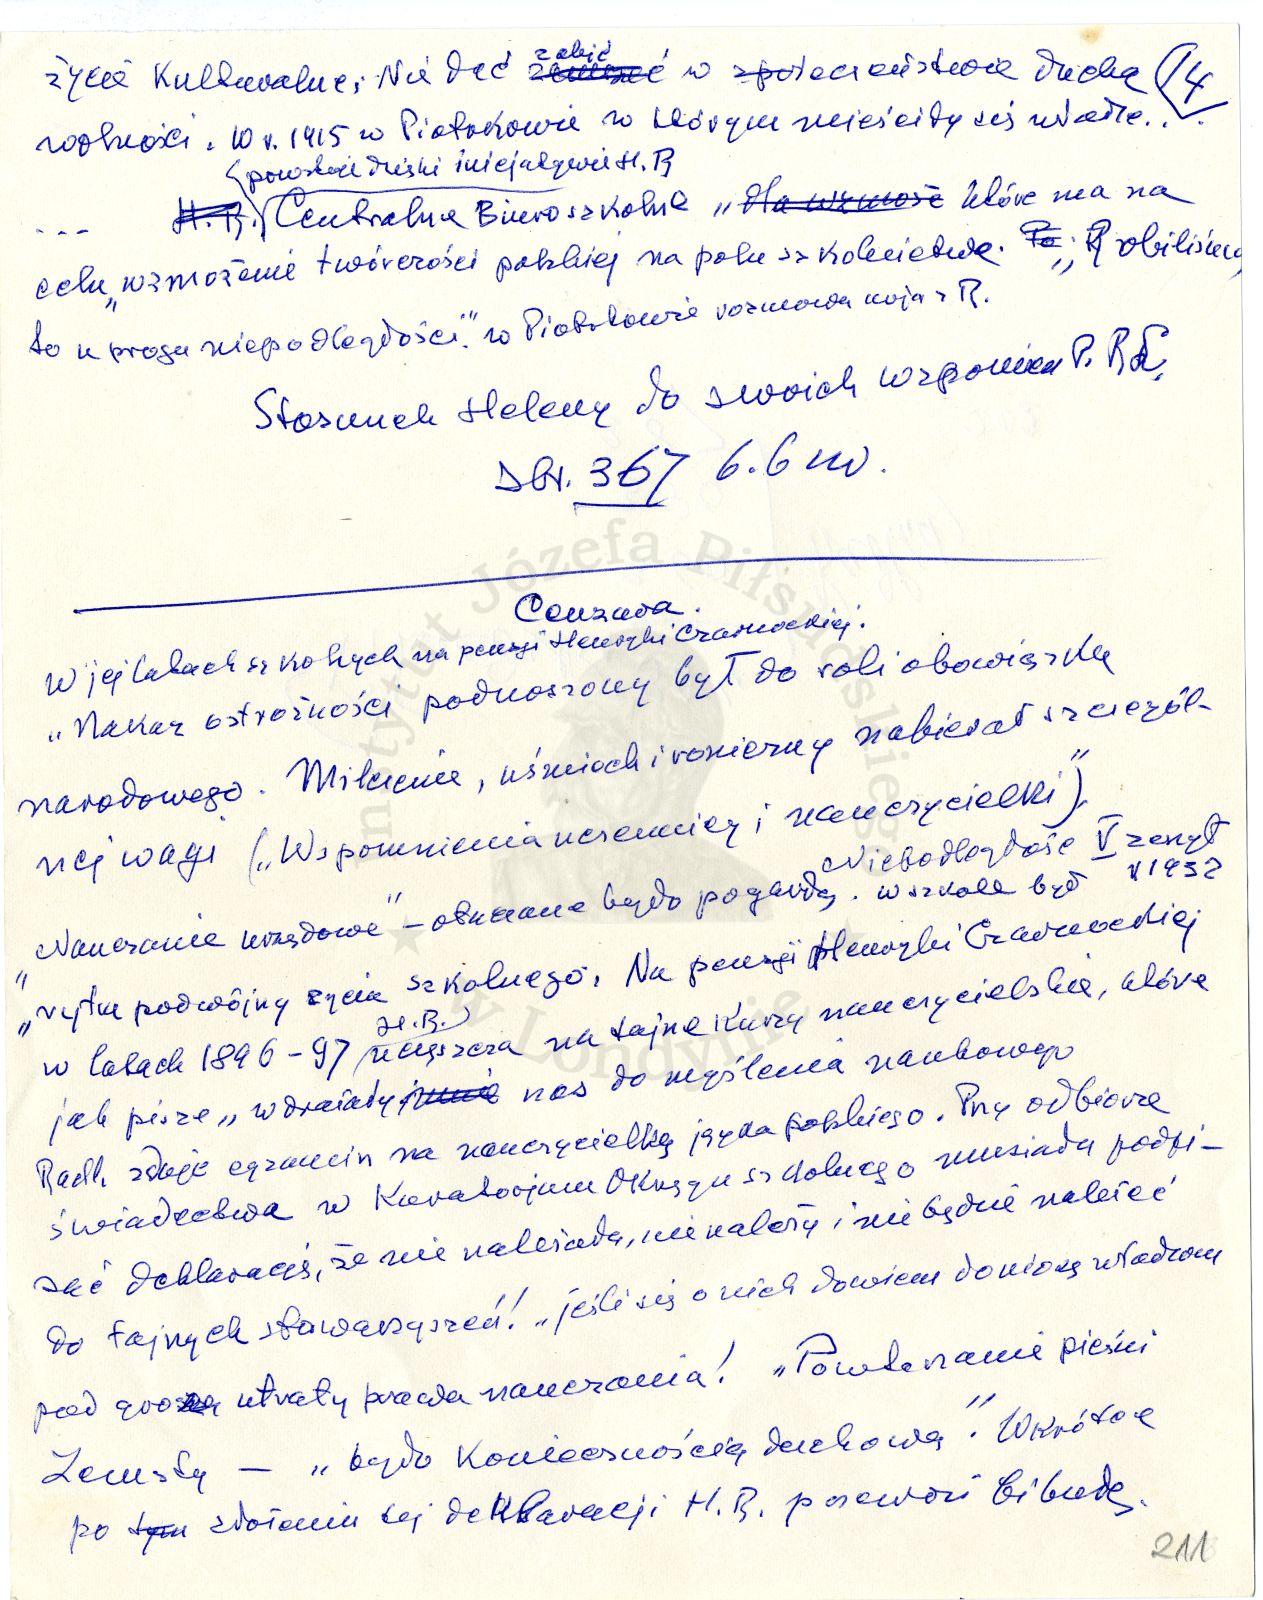 życie Kulturalne, Nie dać zabić w społeczeństwie ducha 14
wolności. W r. 1915 w Piotrkowie w którym mieściły się władze...
powstaje dzięki inicjatywie H. R
... H. R. Centralne Biuro szkolne „dla wzmoże które ma na
celu „wzmożenie twórczości polskiej na polu szkolnictwa. Po „Robiliśmy
to u progu niepodległości." w Piotrkowie rozmowa moja z R.
Stosunek Heleny do swoich wspomnień P. R
str. 367 6.6
Cenzura.
W jej latach szkolnych na pensji Henryki Czarnockiej.
„Nakaz ostrożności podnoszony był do roli obowiązku
narodowego. Milczenie, uśmiech ironiczny nabierał szczegól-
nej wagi („Wspomnienia uczennicy i nauczycielki")
Niepodległość V zeszyt
r 1932
„Nauczanie urzędowe" – otaczane było pogardą. w szkole był
„rytm podwójny życia szkolnego. Na pensji Henryki Czarnockiej
w latach 1896-97 H. R. uczęszcza na tajne kursy nauczycielskie, które
jak pisze „wdrażały nas do myślenia naukowego
Radl. zdaje egzamin na nauczycielkę języka polskiego. Przy odbiorze
świadectwa w Kuratorjum Okręgu szkolnego musiała podpi-
sać deklarację, że nie należała, nie należy i nie będzie należeć
do tajnych stowarzyszeń! „jeśli się o nich dowiem doniosę władzom
pod grozą utraty prawa nauczania! „Powtarzanie pieśni
Zemsty – „było koniecznością duchową". Wkrótce
po tym złożeniu tej deklaracji H. R. przewozi bibułę.
211
Instytut Józefa Piłsudskiego
w Londynie